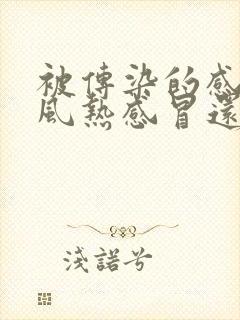 被傳染的感
風熱感冒還
淺諾兮